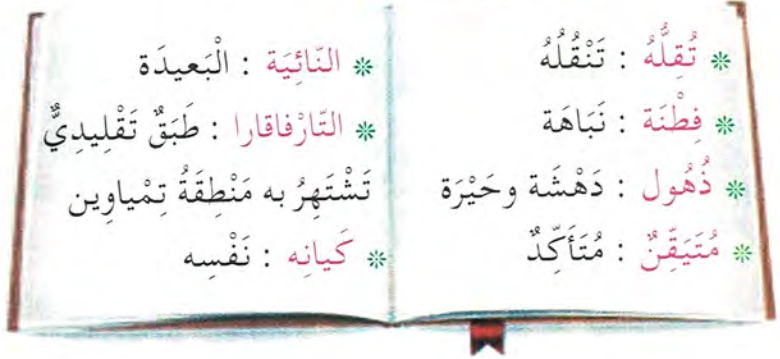 ❊ تُقِلُّهُ : تَنْقُلُهُ
❊ فِطْنَة : نَبَاهَة
❊ ذُهُول : دَهْشَة وحَيْرَة
❊ مُتَيَقِّنٌ : مُتَأَكِّدٌ
❊ النّائِيَة : الْبَعيدَة
❊ التّارْفاقارا : طَبَقٌ تَقْلِيدِيٌّ
تَشْتَهِرُ به مَنْطِقَةُ تِمْياوِين
❊ كَيانِه : نَفْسِه